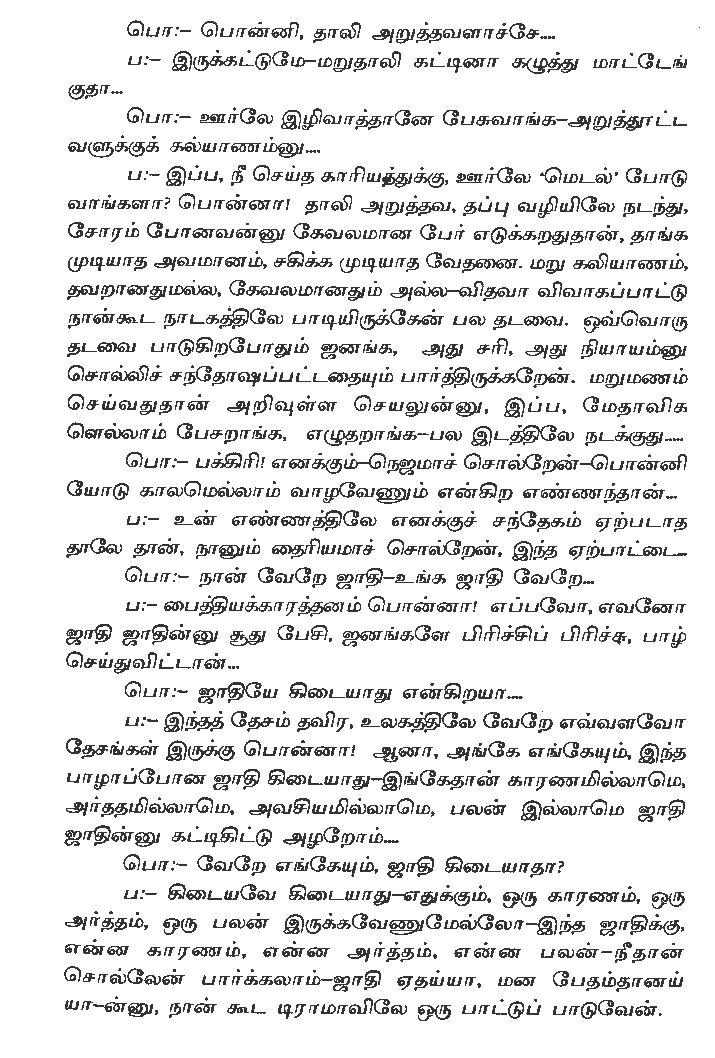 பொ:– பொன்னி, தாலி அறுத்தவளாச்சே....
ப:– இருக்கட்டுமே–மறுதாலி கட்டினா கழுத்து மாட்டேங்
குதா...
பொ:– ஊர்லே இழிவாத்தானே பேசுவாங்க–அறுத்தூட்ட
வளுக்குக் கல்யாணம்னு....
ப:– இப்ப, நீ செய்த காரியத்துக்கு, ஊர்லே ‘மெடல்’ போடு
வாங்களா? பொன்னா! தாலி அறுத்தவ, தப்பு வழியிலே நடந்து,
சோரம் போனவன்னு கேவலமான பேர் எடுக்கறதுதான், தாங்க
முடியாத அவமானம், சகிக்க முடியாத வேதனை. மறு கலியாணம்,
தவறானதுமல்ல, கேவலமானதும் அல்ல–விதவா விவாகப்பாட்டு
நான்கூட நாடகத்திலே பாடியிருக்கேன் பல தடவை. ஒவ்வொரு
தடவை பாடுகிறபோதும் ஜனங்க, அது சரி, அது நியாயம்னு
சொல்லிச் சந்தோஷப்பட்டதையும் பார்த்திருக்கறேன். மறுமணம்
செய்வதுதான் அறிவுள்ள செயலுன்னு, இப்ப, மேதாவிக
ளெல்லாம் பேசறாங்க, எழுதறாங்க–பல இடத்திலே நடக்குது.....
பொ:– பக்கிரி! எனக்கும்–நெஜமாச் சொல்றேன்–பொன்னி
யோடு காலமெல்லாம் வாழவேணும் என்கிற எண்ணந்தான்...
ப:– உன் எண்ணத்திலே எனக்குச் சந்தேகம் ஏற்படாத
தாலே தான், நானும் தைரியமாச் சொல்றேன், இந்த ஏற்பாட்டை...
பொ:– நான் வேறே ஜாதி–உங்க ஜாதி வேறே...
ப:– பைத்தியக்காரத்தனம் பொன்னா! எப்பவோ, எவனோ
ஜாதி ஜாதின்னு சூது பேசி, ஜனங்களே பிரிச்சிப் பிரிச்சு, பாழ்
செய்துவிட்டான்...
பொ:– ஜாதியே கிடையாது என்கிறயா....
ப:– இந்தத் தேசம் தவிர, உலகத்திலே வேறே எவ்வளவோ
தேசங்கள் இருக்கு பொன்னா! ஆனா, அங்கே எங்கேயும், இந்த
பாழாப்போன ஜாதி கிடையாது–இங்கேதான் காரணமில்லாமெ,
அர்த்தமில்லாமெ, அவசியமில்லாமெ, பலன் இல்லாமெ ஜாதி
ஜாதின்னு கட்டிகிட்டு அழறோம்....
பொ:– வேறே எங்கேயும், ஜாதி கிடையாதா?
ப:– கிடையவே கிடையாது–எதுக்கும், ஒரு காரணம், ஒரு
அர்த்தம், ஒரு பலன் இருக்கவேணுமேல்லோ–இந்த ஜாதிக்கு,
என்ன காரணம், என்ன அர்த்தம், என்ன பலன்–நீதான்
சொல்லேன் பார்க்கலாம்–ஜாதி ஏதய்யா, மன பேதம்தானய்
யா–ன்னு, நான் கூட டிராமாவிலே ஒரு பாட்டுப் பாடுவேன்.